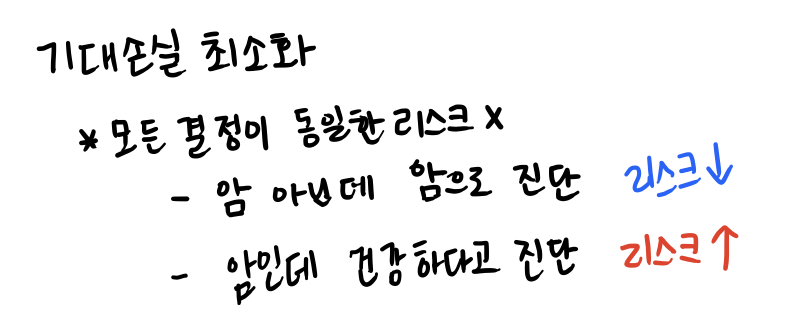 기대손실 최소화
* 모든 결정이 동일한 리스크 X
- 암 아닌데 암으로 진단 리스크↓
- 암인데 건강하다고 진단 리스크↑